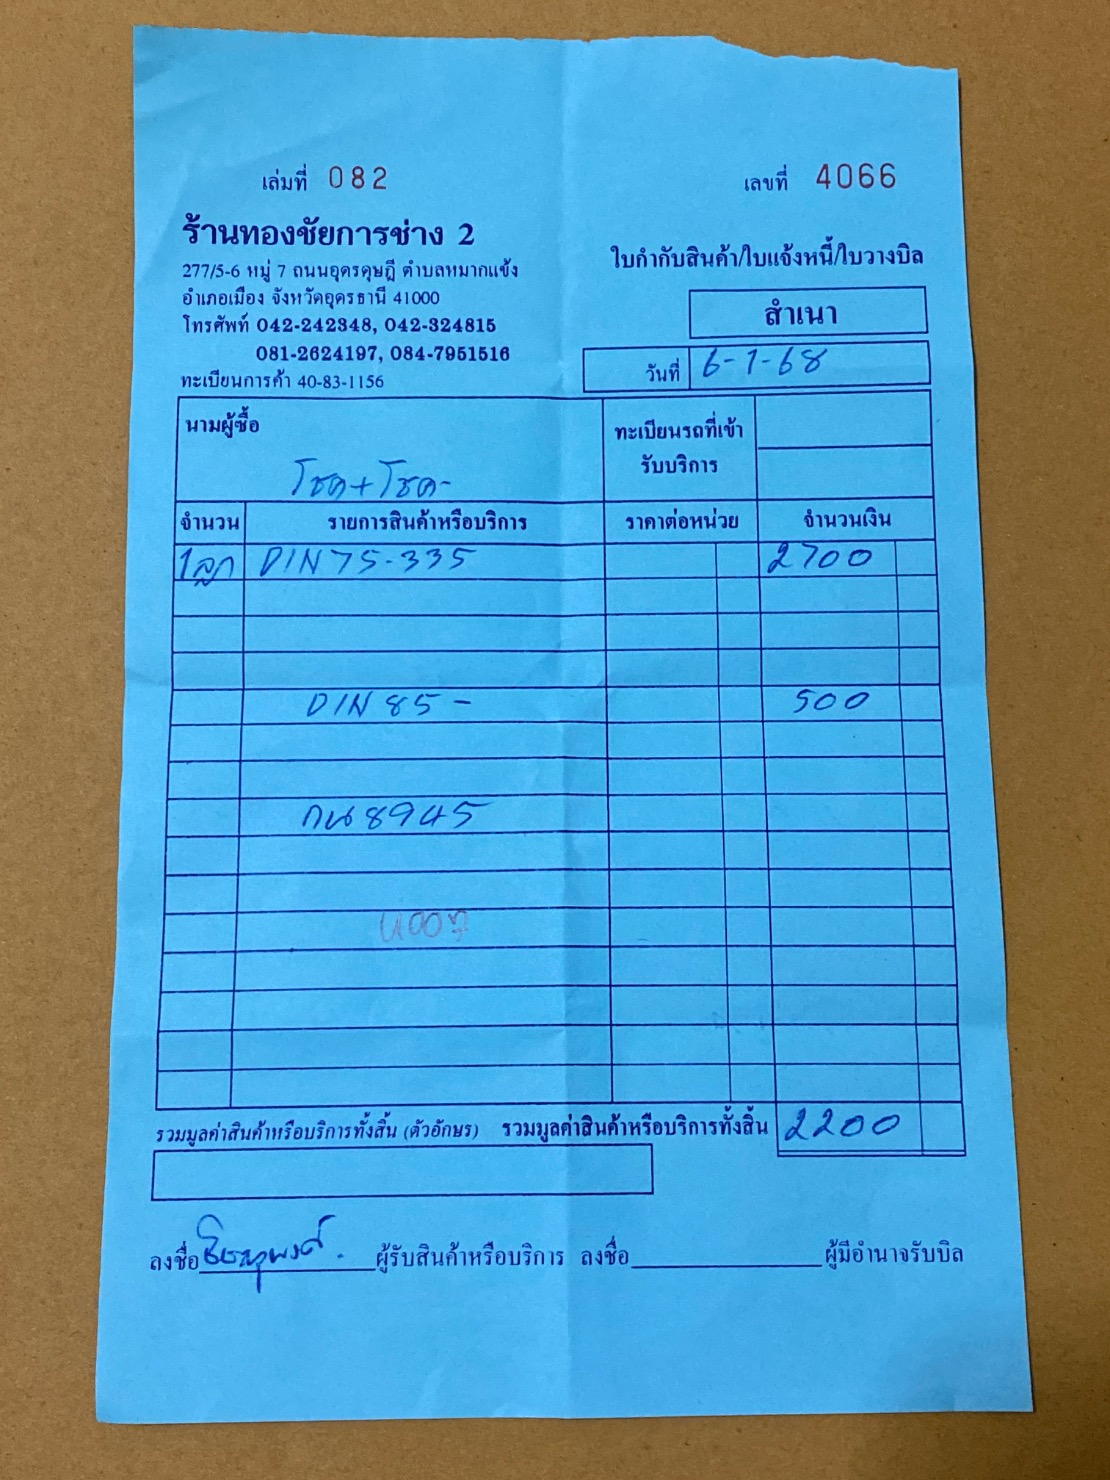 เล่มที่ 082
เลขที่ 4066
ร้านทองชัยการช่าง 2
277/5-6 หมู่ 7 ถนนอุดรดุษฎี ตำบลหมากแข้ง
อำเภอเมือง จังหวัดอุดรธานี 41000
โทรศัพท์ 042-242348, 042-324815
081-2624197, 084-7951516
ทะเบียนการค้า 40-83-1156
ใบกำกับสินค้า/ใบแจ้งหนี้/ใบวางบิล
สำเนา
วันที่ 6-1-68
นามผู้ซื้อ
โชค+โชค-
ทะเบียนรถที่เข้า
รับบริการ
จำนวน รายการสินค้าหรือบริการ ราคาต่อหน่วย จำนวนเงิน
1ลูก DIN75-335 2700
DIN 85- 500
กน8945
รวมมูลค่าสินค้าหรือบริการทั้งสิ้น (ตัวอักษร) รวมมูลค่าสินค้าหรือบริการทั้งสิ้น 2200
ลงชื่อ ผู้รับสินค้าหรือบริการ ลงชื่อ ผู้มีอำนาจรับบิล